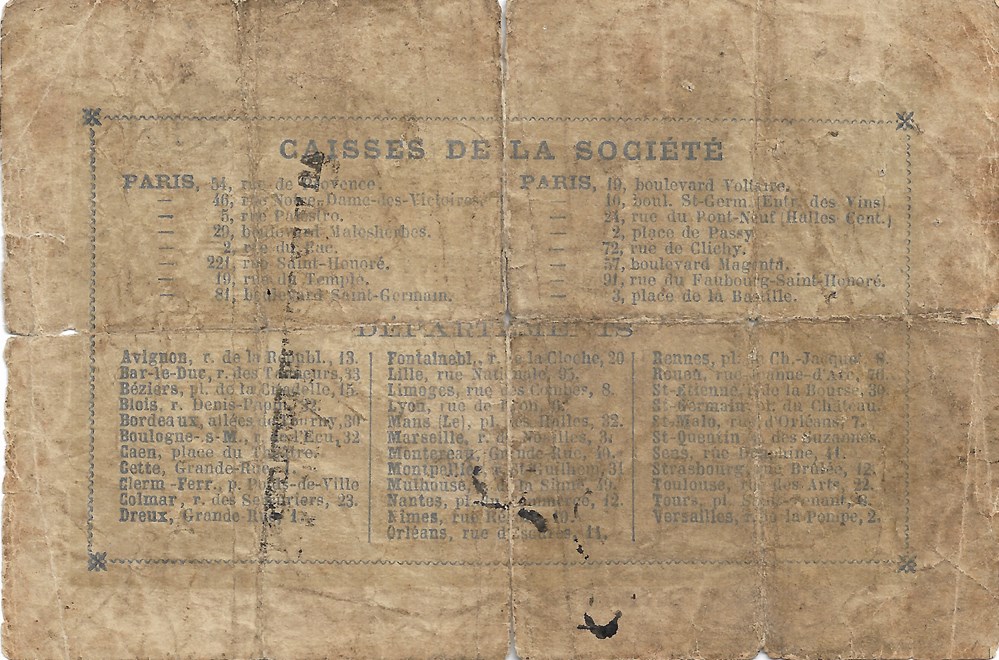 CAISSES DE LA SOCIÉTÉ
PARIS, 54, rue de Provence.
— 46, rue Notre-Dame-des-Victoires.
— 5, rue Palestro.
— 29, boulevard Malesherbes.
— 2, rue du Bac.
— 221, rue Saint-Honoré.
— 19, rue du Temple.
— 81, boulevard Saint-Germain.
PARIS, 19, boulevard Voltaire.
— 10, boul. St-Germ. (Entr. des Vins)
— 24, rue du Pont-Neuf (Halles Cent.)
— 2, place de Passy
— 72, rue de Clichy.
— 57, boulevard Magenta.
— 91, rue du Faubourg-Saint-Honoré.
— 3, place de la Bastille.
DÉPARTEMENTS
Avignon, r. de la Républ., 13.
Bar-le-Duc, r. des Tanneurs, 33
Béziers, pl. de la Citadelle, 15.
Blois, r. Denis-Papin,
Bordeaux, allées de Tourny, 30
Boulogne-s-M., r. de l'Écu, 32
Caen, place du Théâtre.
Cette, Grande-Rue,
Clerm-Ferr., p. Poids-de-Ville
Colmar, r. des Serruriers, 23.
Dreux, Grande-Rue,
Fontainebl., r. de la Cloche, 20
Lille, rue Nationale, 95.
Limoges, rue des Combes, 8.
Lyon, rue de Lyon,
Mans (Le), pl. des Halles, 32.
Marseille, r. de Noailles, 3.
Montereau, Grande-Rue, 40.
Montpellier, r. St-Guilhem, 31
Mulhouse, de la Sinne,
Nantes, pl. du Commerce, 12.
Nîmes, rue
Orléans, rue d'Escures, 11.
Rennes, pl. de Ch.-Jacquet, 8.
Rouen, rue Jeanne-d'Arc,
St-Étienne, de la Bourse, 30.
St-Germain, pl. du Château.
St-Malo, rue d'Orléans, 7.
St-Quentin, des Suzannes,
Sens, rue Dauphine, 11.
Strasbourg, rue Brûlée, 12.
Toulouse, rue des Arts, 22.
Tours, pl.
Versailles, r. de la Pompe, 2.